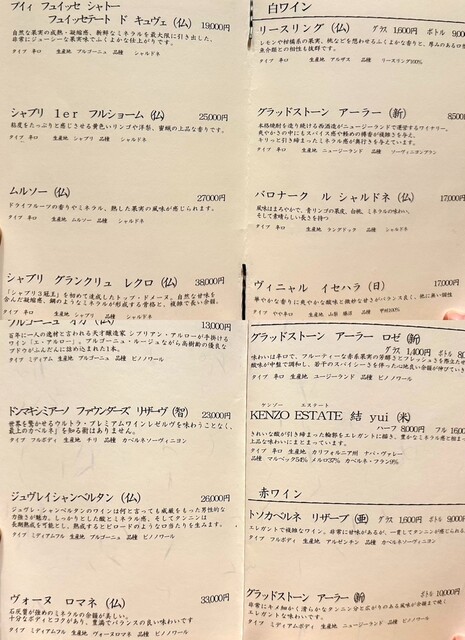 プイィ フュイッセ シャトー
フュイッセテート ド キュヴェ (仏) 19,000円
自然な果実の成熟・凝縮感、新鮮なミネラルを最大限に引き出した。
非常にジューシーな果実味でふくよかな仕上がりです。
タイプ 辛口 生産地 ブルゴーニュ 品種 シャルドネ
シャブリ 1er フルショーム (仏) 25,000円
粘度をたっぷりと感じさせる黄色いリンゴや洋梨、蜜蝋の上品な香りです。
タイプ 辛口 生産地 シャブリ 品種 シャルドネ
ムルソー (仏) 27,000円
ドライフルーツの香りやミネラル、熟した果実の風味が感じられます。
タイプ 辛口 生産地 ムルソー 品種 シャルドネ
シャブリ グランクリュ レクロ (仏) 38,000円
「シャブリ3冠王」を初めて達成したトップ・ドメーヌ。自然な甘味を
含んだ凝縮感、鋼のようなミネラルが形成する骨格と、複雑で長い余韻。
タイプ 辛口 生産地 シャブリ 品種 シャルドネ
白ワイン
リースリング (仏) グラス 1,600円 ボトル 9,00
レモンや柑橘系の果実、桃などを想わせるふくよかな香りと、厚みのある口
魚介類との相性も抜群です。
タイプ 辛口 生産地 アルザス 品種 リースリング100%
グラッドストーン アーラー (新) 8,500
本格焼酎を造り続ける西酒造がニュージーランドで運営するワイナリー。
爽やかさの中にもスパイス感や軽めの樽香が複雑さを与え、
キリっと引き締まったミネラル感が奥行きを与えています。
タイプ 辛口 生産地 ニュージーランド 品種 ソーヴィニヨンブラン
バロナーク ル シャルドネ (仏) 17,000円
風味はまろやかで、青リンゴの果皮、白桃、ミネラルの味わい、
そして素晴らしい長さを持つ
タイプ 辛口 生産地 ラングドック 品種 シャルドネ
ヴィニャル イセハラ (日) 17,000円
華やかな香りに爽やかな酸味と微妙な甘さがバランス良く、他に無い個性
タイプ やや辛口 生産地 山梨 勝沼 品種 甲州100%
13,000円
百年に一人の逸材と言われる天才醸造家 シプリアン・アルローが手掛ける
ワイン「エ・アルロー」。ブルゴーニュ・ルージュながら高樹齢の優良な
ブドウがふんだんに詰め込まれた1本。
タイプ ミディアム 生産地 ブルゴーニュ 品種 ピノノワール
ドンマキシミアーノ ファウンダーズ リザーヴ (智) 23,000円
世界を驚かせるウルトラ・プレミアムワインレゼルヴを味わうことなく、
最上のカベルネ」を知る術はありません。
タイプ フルボディ 生産地 チリ 品種 カベルネソーヴィニヨン
ジュヴレイシャンベルタン (仏) 26,000円
ジュヴレ・シャンベルタンのワインは何と言っても威厳をもった男性的な
力強さが魅力。しっかりとした酸とミネラル感、そしてタンニンは
長期熟成を可能とし、熟成するとビロードのような口当たりを生みます。
タイプ ミディアムフル 生産地 ブルゴーニュ 品種 ピノノワール
ヴォーヌ ロマネ (仏) 33,000円
石灰質が強めのミネラルの余韻が美しい。
十分なボディとコクがあり、豊満でバランスの良い味わいです
タイプ ミディアムフル 生産地 ヴォーヌロマネ 品種 ピノノワール
グラッドストーン アーラー ロゼ (新)
グラス 1,400円 ボトル 8,0
味わいは辛口で、フルーティーな赤系果実の芳醇さとフレッシュさを際立たせ
酸味が中盤で調和し、若干のスパイシーさを伴った心地良い余韻が伸びていき
タイプ 辛口 生産地 ニュージーランド 品種 ピノノワール
ケンゾー エステート
KENZO ESTATE 結 yui (米)
ハーフ 8,000円 フル 16,0
きれいな酸が引き締まった輪郭をエレガントに描き、豊かなミネラル感と相ま
上品な味わいにまとまっています。
タイプ 辛口 生産地 カリフォルニア州 ナパ・ヴァレー
品種 マルベック54% メルロ37% カベルネ・フラン9%
赤ワイン
トソカベルネ リザーブ (亜) グラス 1,600円 ボトル 9,000
エレガントで複雑なワイン。非常に甘味があるが、一貫してタンニンが感じられる
タイプ フルボディ 生産地 アルゼンチン 品種 カベルネソーヴィニヨン
グラッドストーン アーラー (新) ボトル 10,000円
非常にキメ細かく滑らかなタンニン分と広がりのある風味が余韻まで続く
エレガントな味わい
タイプ ミディアムボディ 生産地 ニュージーランド 品種 ピノノワール